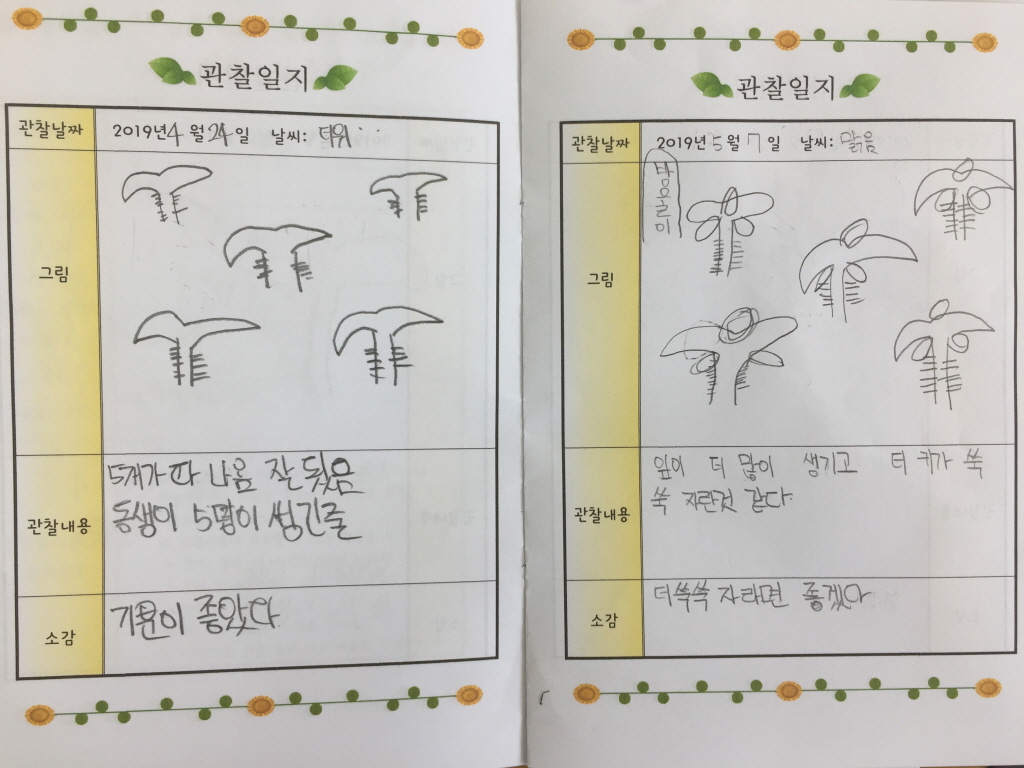 관찰일지
관찰날짜 2019년 4월 24일 날씨: 더워
그림
관찰내용
5개가 다 나옴 잘 됬음
동생이 5명이 씽긴줄
소감
기분이 좋았다
관찰일지
관찰날짜 2019년 5월 7일 날씨: 맑음
그림
방울이
관찰내용
잎이 더 많이 생기고 더 키가 쑥
쑥 자란것 같다
소감
더쑥쑥 자라면 좋겠다